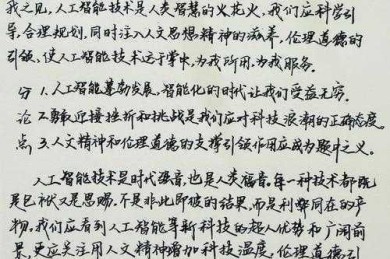 我之见，人工智能技术是人类智慧的火花火，我们应科学引
导，合理规划，同时注入人文思想精神的滋养，伦理道德的
引领，使人工智能技术运于掌中，为我所用，为我服务。
分 1.人工智能蓬勃发展，智能化的时代让我们受益无穷。
论 2.勇敢迎接挫折和挑战是我们应对科技浪潮的正确态度。
点 3.人文精神和伦理道德的支撑引领作用应成为题中之义。
人工智能技术是时代强音，也是人类福音，每一种技术都既
是包袱又是恩赐，不是非此即彼的结果，而是利弊同在的产
物，我们应看到人工智能等新科技的超人优势和广阔前
景，更应关注用人文精神增加科技温度，伦理道德引